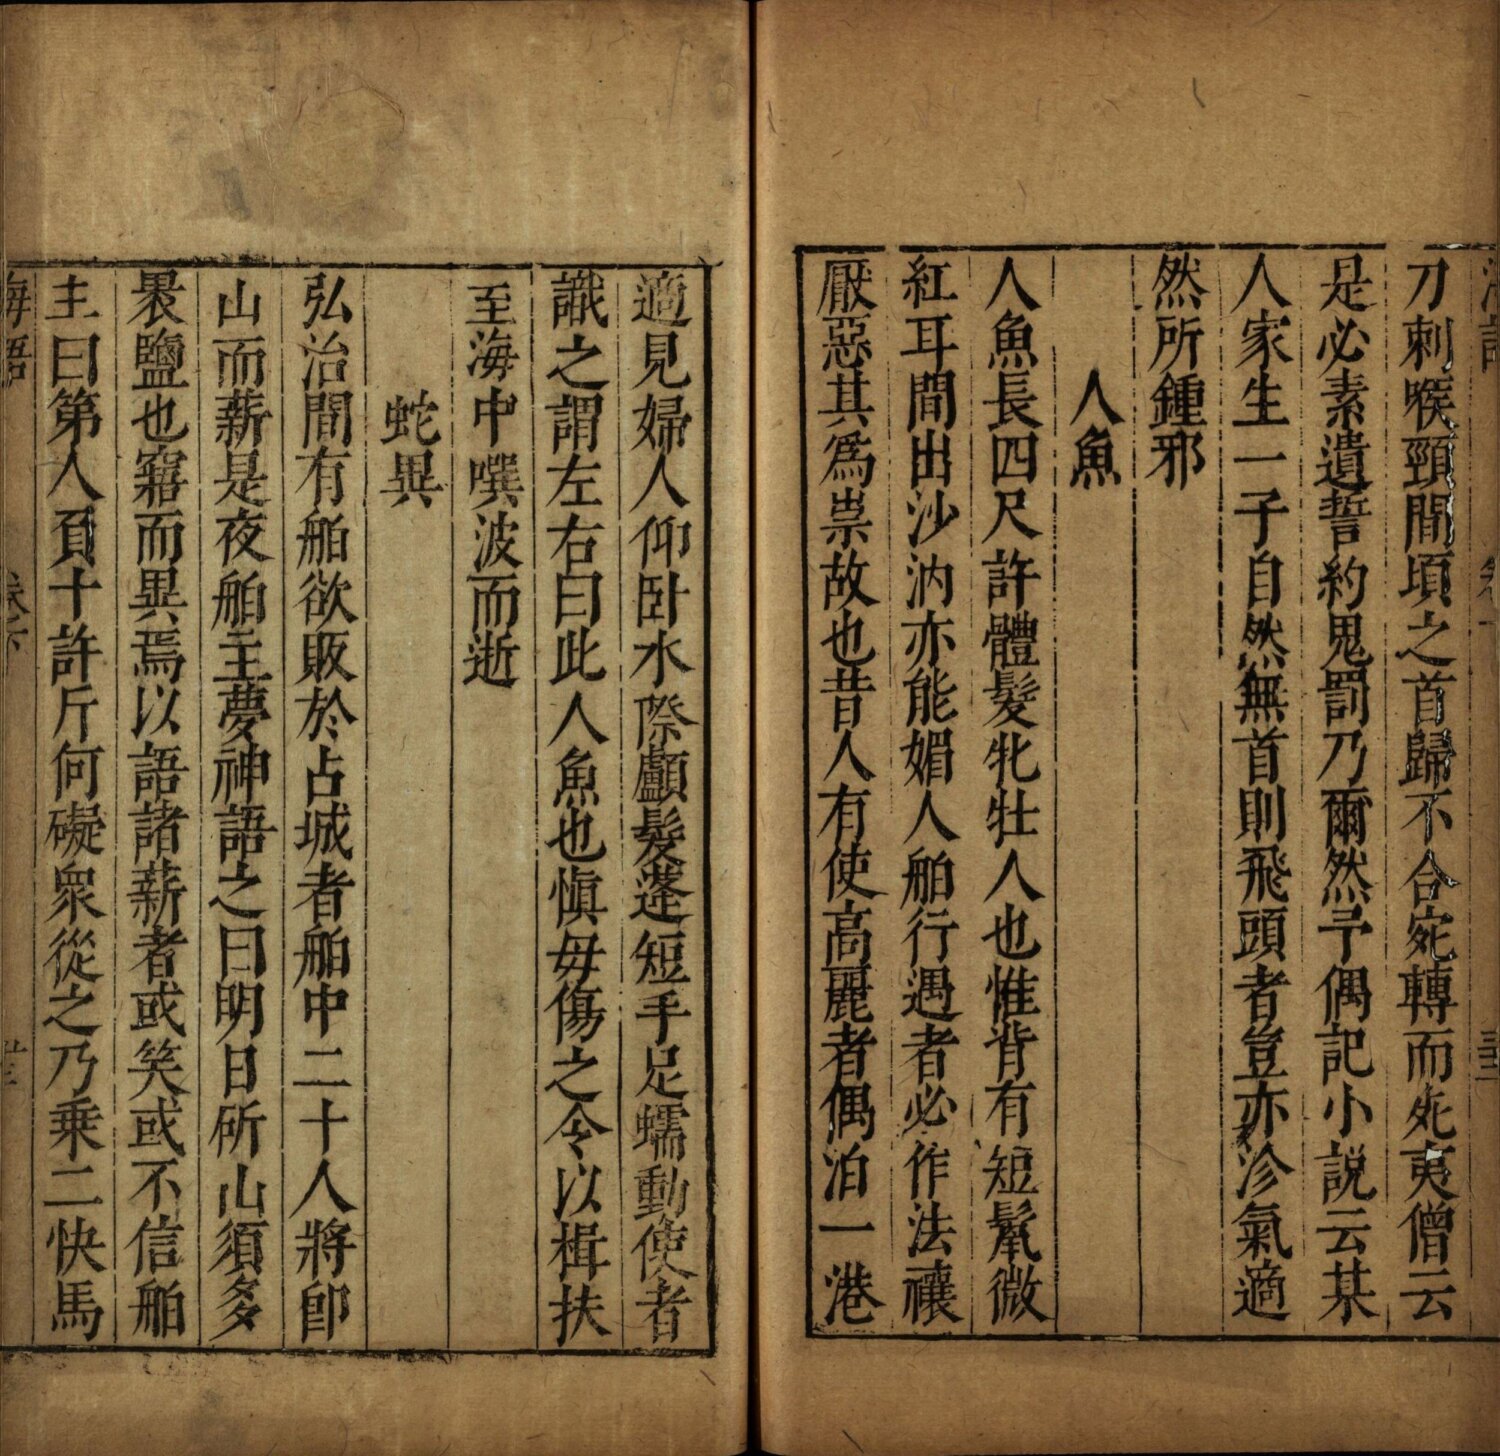 刀刺喉頸間頃之首歸不合宛轉而死夷僧云
是必素遺誓約鬼罰乃爾然予偶記小説云某
人家生一子自然無首則飛頭者豈亦沴氣適
然所鍾邪
人魚
人魚長四尺許體髮牝牡人也惟背有短鬣微
紅耳間出沙汭亦能媚人舶行遇者必作法禳
厭惡其爲祟故也昔人有使高麗者偶泊一港
適見婦人仰卧水際顱髮蓬短手足蠕動使者
識之謂左右曰此人魚也愼毋傷之令以楫扶
至海中噀波而逝
蛇異
弘治間有舶欲販於占城者舶中二十人將卽
山而薪是夜舶主夢神語之曰明日斫山須多
褁鹽也寤而異焉以語諸薪者或笑或不信舶
主曰第人頁十許斤何礙衆從之乃乗二快馬
海語